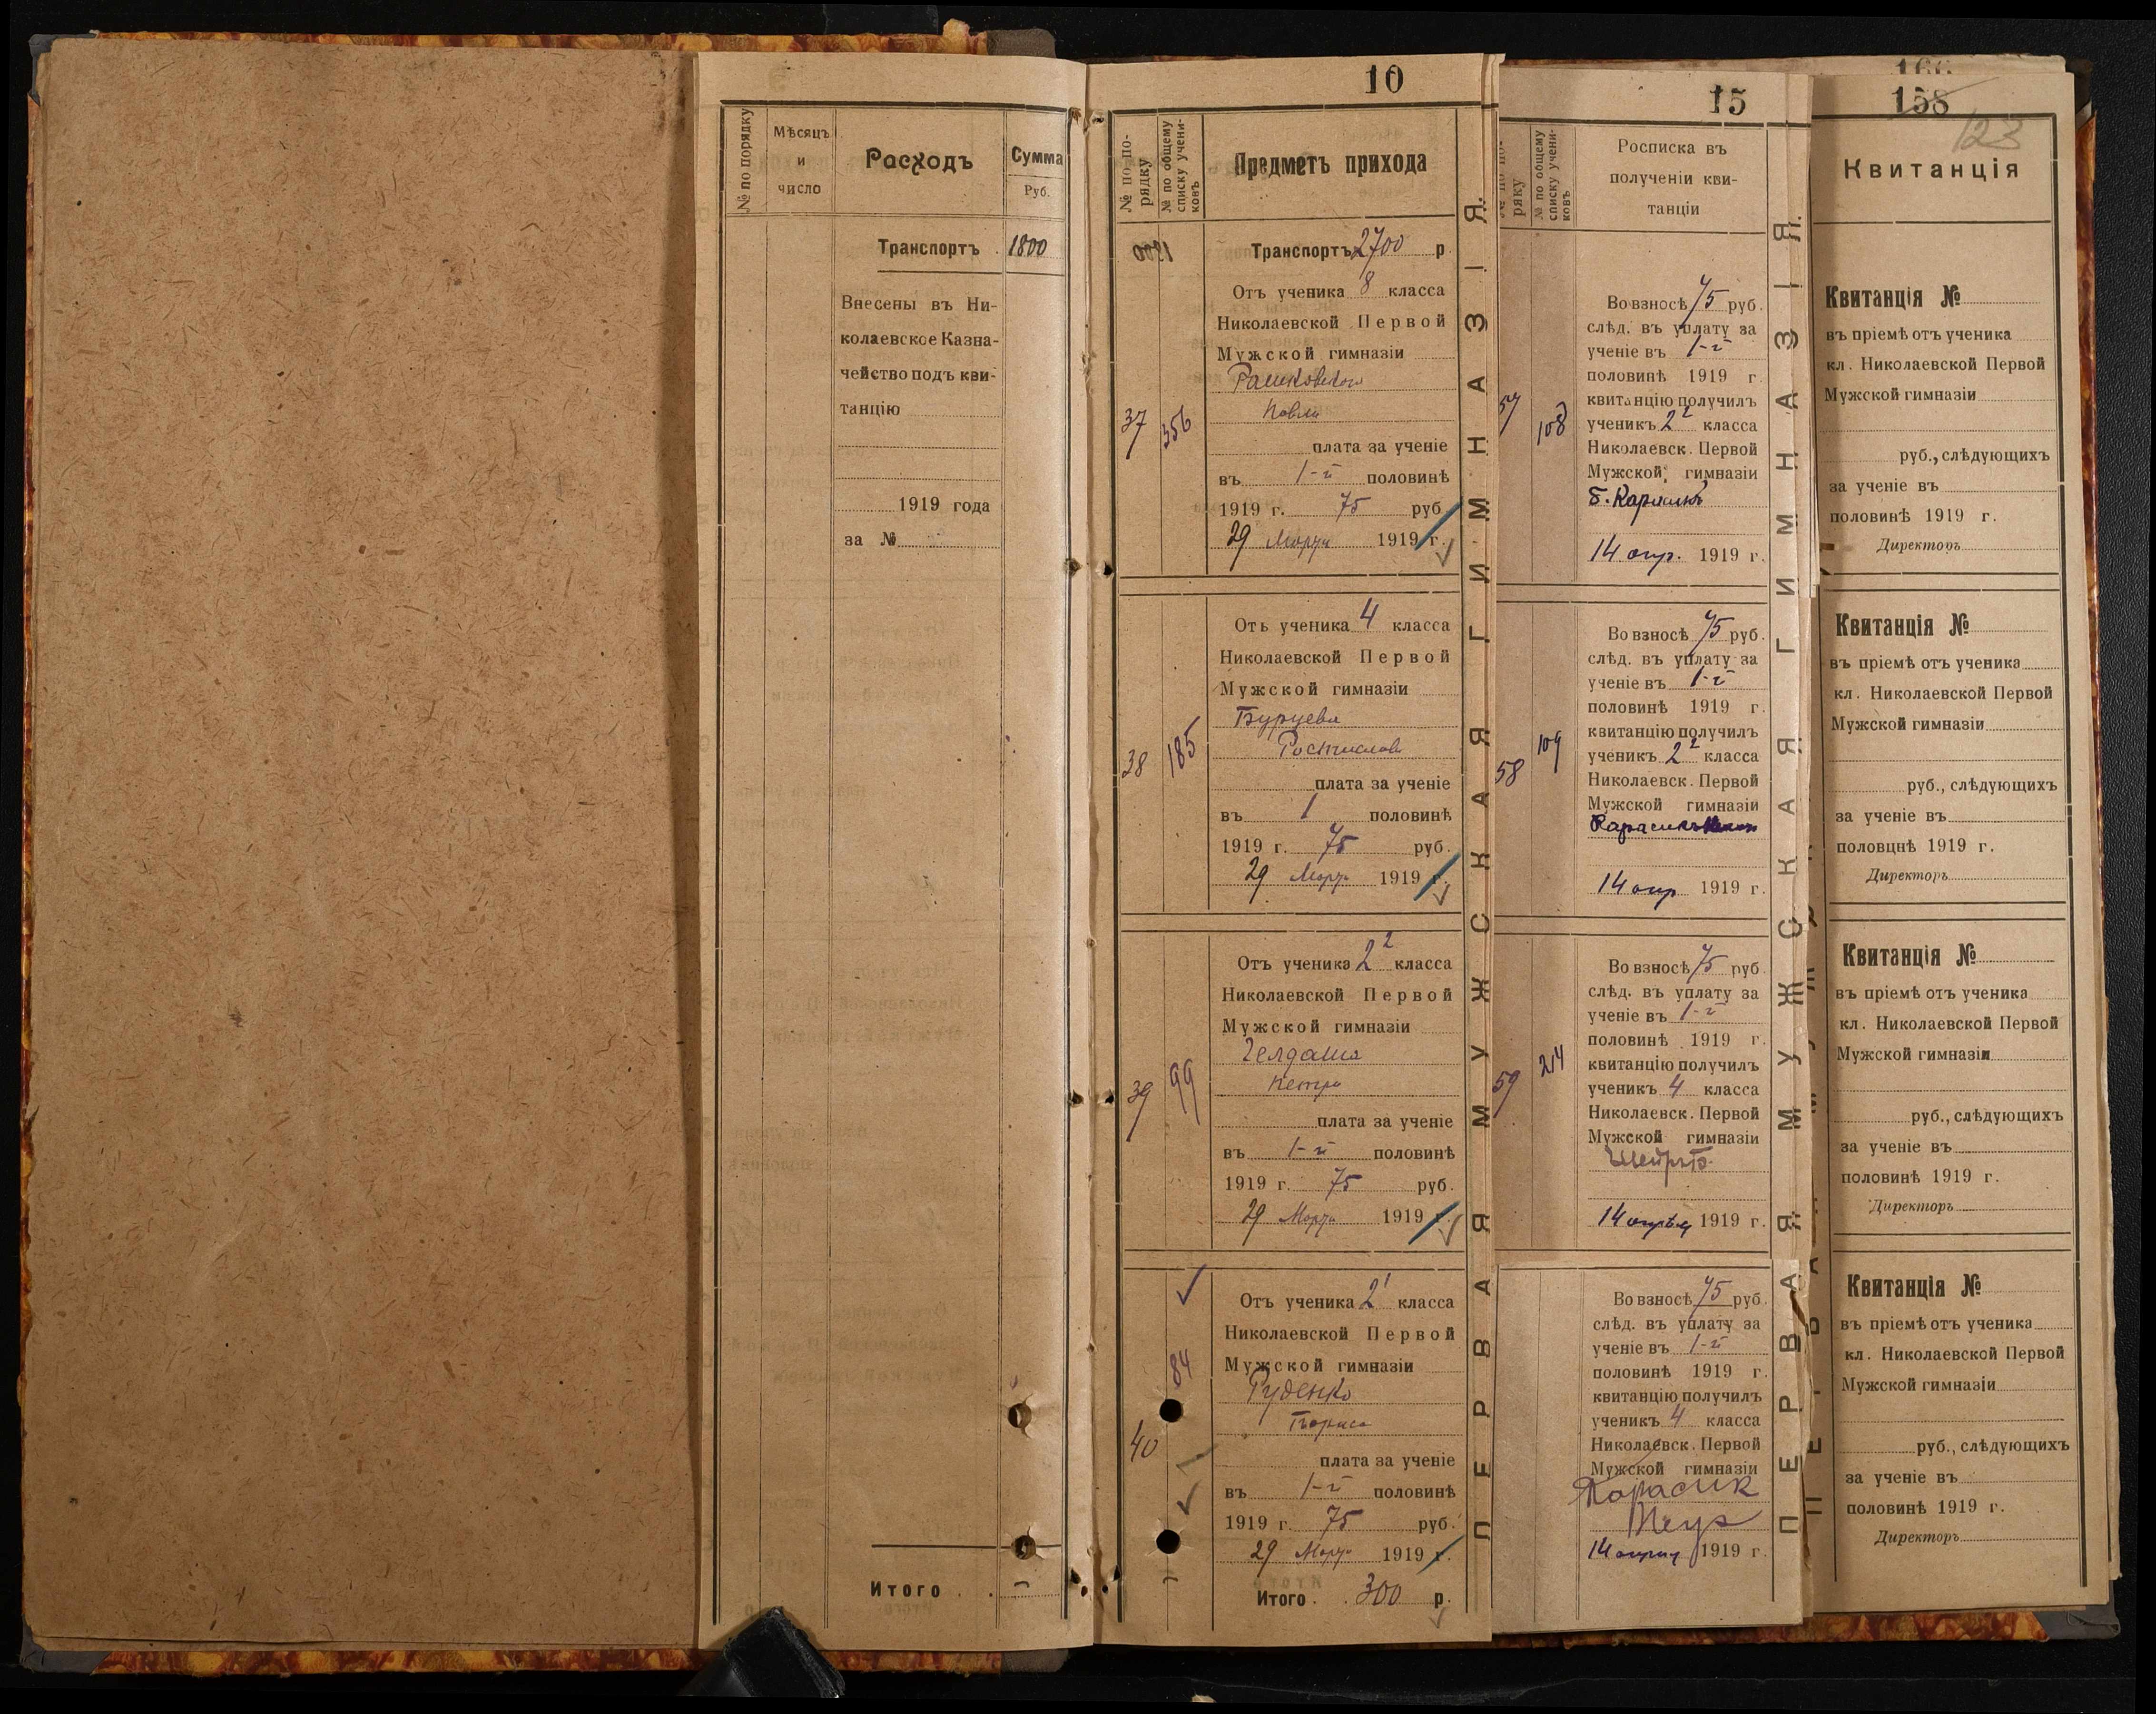 № по порядку
Мѣсяцъ
и
число
Расходъ
Сумма
Руб.
Транспортъ 1800
Внесены въ Ни-
колаевское Казна-
чейство подъ кви-
танцію
1919 года
за №
Итого . .
10
№ по по-
рядку
№ по общему
списку учени-
ковъ
Предметъ прихода
Транспортъ 2700 р.
Отъ ученика 8 класса
Николаевской Первой
Мужской гимназіи
Рашковскаго
Павла
37
356
плата за ученіе
въ 1-й половинѣ
1919 г. 75 руб.
29 Марта 1919 г.
Отъ ученика 4 класса
Николаевской Первой
Мужской гимназіи
Бурцева
Ростислава
38
185
плата за ученіе
въ 1 половинѣ
1919 г. 75 руб.
29 Марта 1919 г.
Отъ ученика 2² класса
Николаевской Первой
Мужской гимназіи
Челдаша
Петра
39
99
плата за ученіе
въ 1-й половинѣ
1919 г. 75 руб.
29 Марта 1919 г.
Отъ ученика 2¹ класса
Николаевской Первой
Мужской гимназіи
84
Руденко
Бориса
40
плата за ученіе
въ 1-й половинѣ
1919 г. 75 руб.
29 Марта 1919 г.
Итого . . 300 р.
ПЕРВАЯ МУЖСКАЯ ГИМНАЗІЯ.
15
ряку
№ по общему
списку учени-
ковъ
Росписка въ
полученіи кви-
танціи
Во взносѣ 75 руб.
слѣд. въ уплату за
ученіе въ 1-й
половинѣ 1919 г.
квитанцію получилъ
57
108
ученикъ 2² класса
Николаевск. Первой
Мужской гимназіи
Б. Карасикъ
14 апр. 1919 г.
Во взносѣ 75 руб.
слѣд. въ уплату за
ученіе въ 1-й
половинѣ 1919 г.
квитанцію получилъ
58
109
ученикъ 2² класса
Николаевск. Первой
Мужской гимназіи
Карасикъ
14 апр 1919 г.
Во взносѣ 75 руб.
слѣд. въ уплату за
ученіе въ 1-й
половинѣ 1919 г.
квитанцію получилъ
59
214
ученикъ 4 класса
Николаевск. Первой
Мужской гимназіи
14 апрѣля 1919 г.
Во взносѣ 75 руб.
слѣд. въ уплату за
ученіе въ 1-й
половинѣ 1919 г.
квитанцію получилъ
ученикъ 4 класса
Николаевск. Первой
Мужской гимназіи
Карасик
14 апрѣля 1919 г.
ПЕРВАЯ МУЖСКАЯ ГИМНАЗІЯ.
166
158
123
Квитанція
Квитанція №
въ пріемѣ отъ ученика
кл. Николаевской Первой
Мужской гимназіи
руб., слѣдующихъ
за ученіе въ
половинѣ 1919 г.
Директоръ
Квитанція №
въ пріемѣ отъ ученика
кл. Николаевской Первой
Мужской гимназіи
руб., слѣдующихъ
за ученіе въ
половцнѣ 1919 г.
Директоръ
Квитанція №
въ пріемѣ отъ ученика
кл. Николаевской Первой
Мужской гимназіи
руб., слѣдующихъ
за ученіе въ
половинѣ 1919 г.
Директоръ
Квитанція №
въ пріемѣ отъ ученика
кл. Николаевской Первой
Мужской гимназіи
руб., слѣдующихъ
за ученіе въ
половинѣ 1919 г.
Директоръ